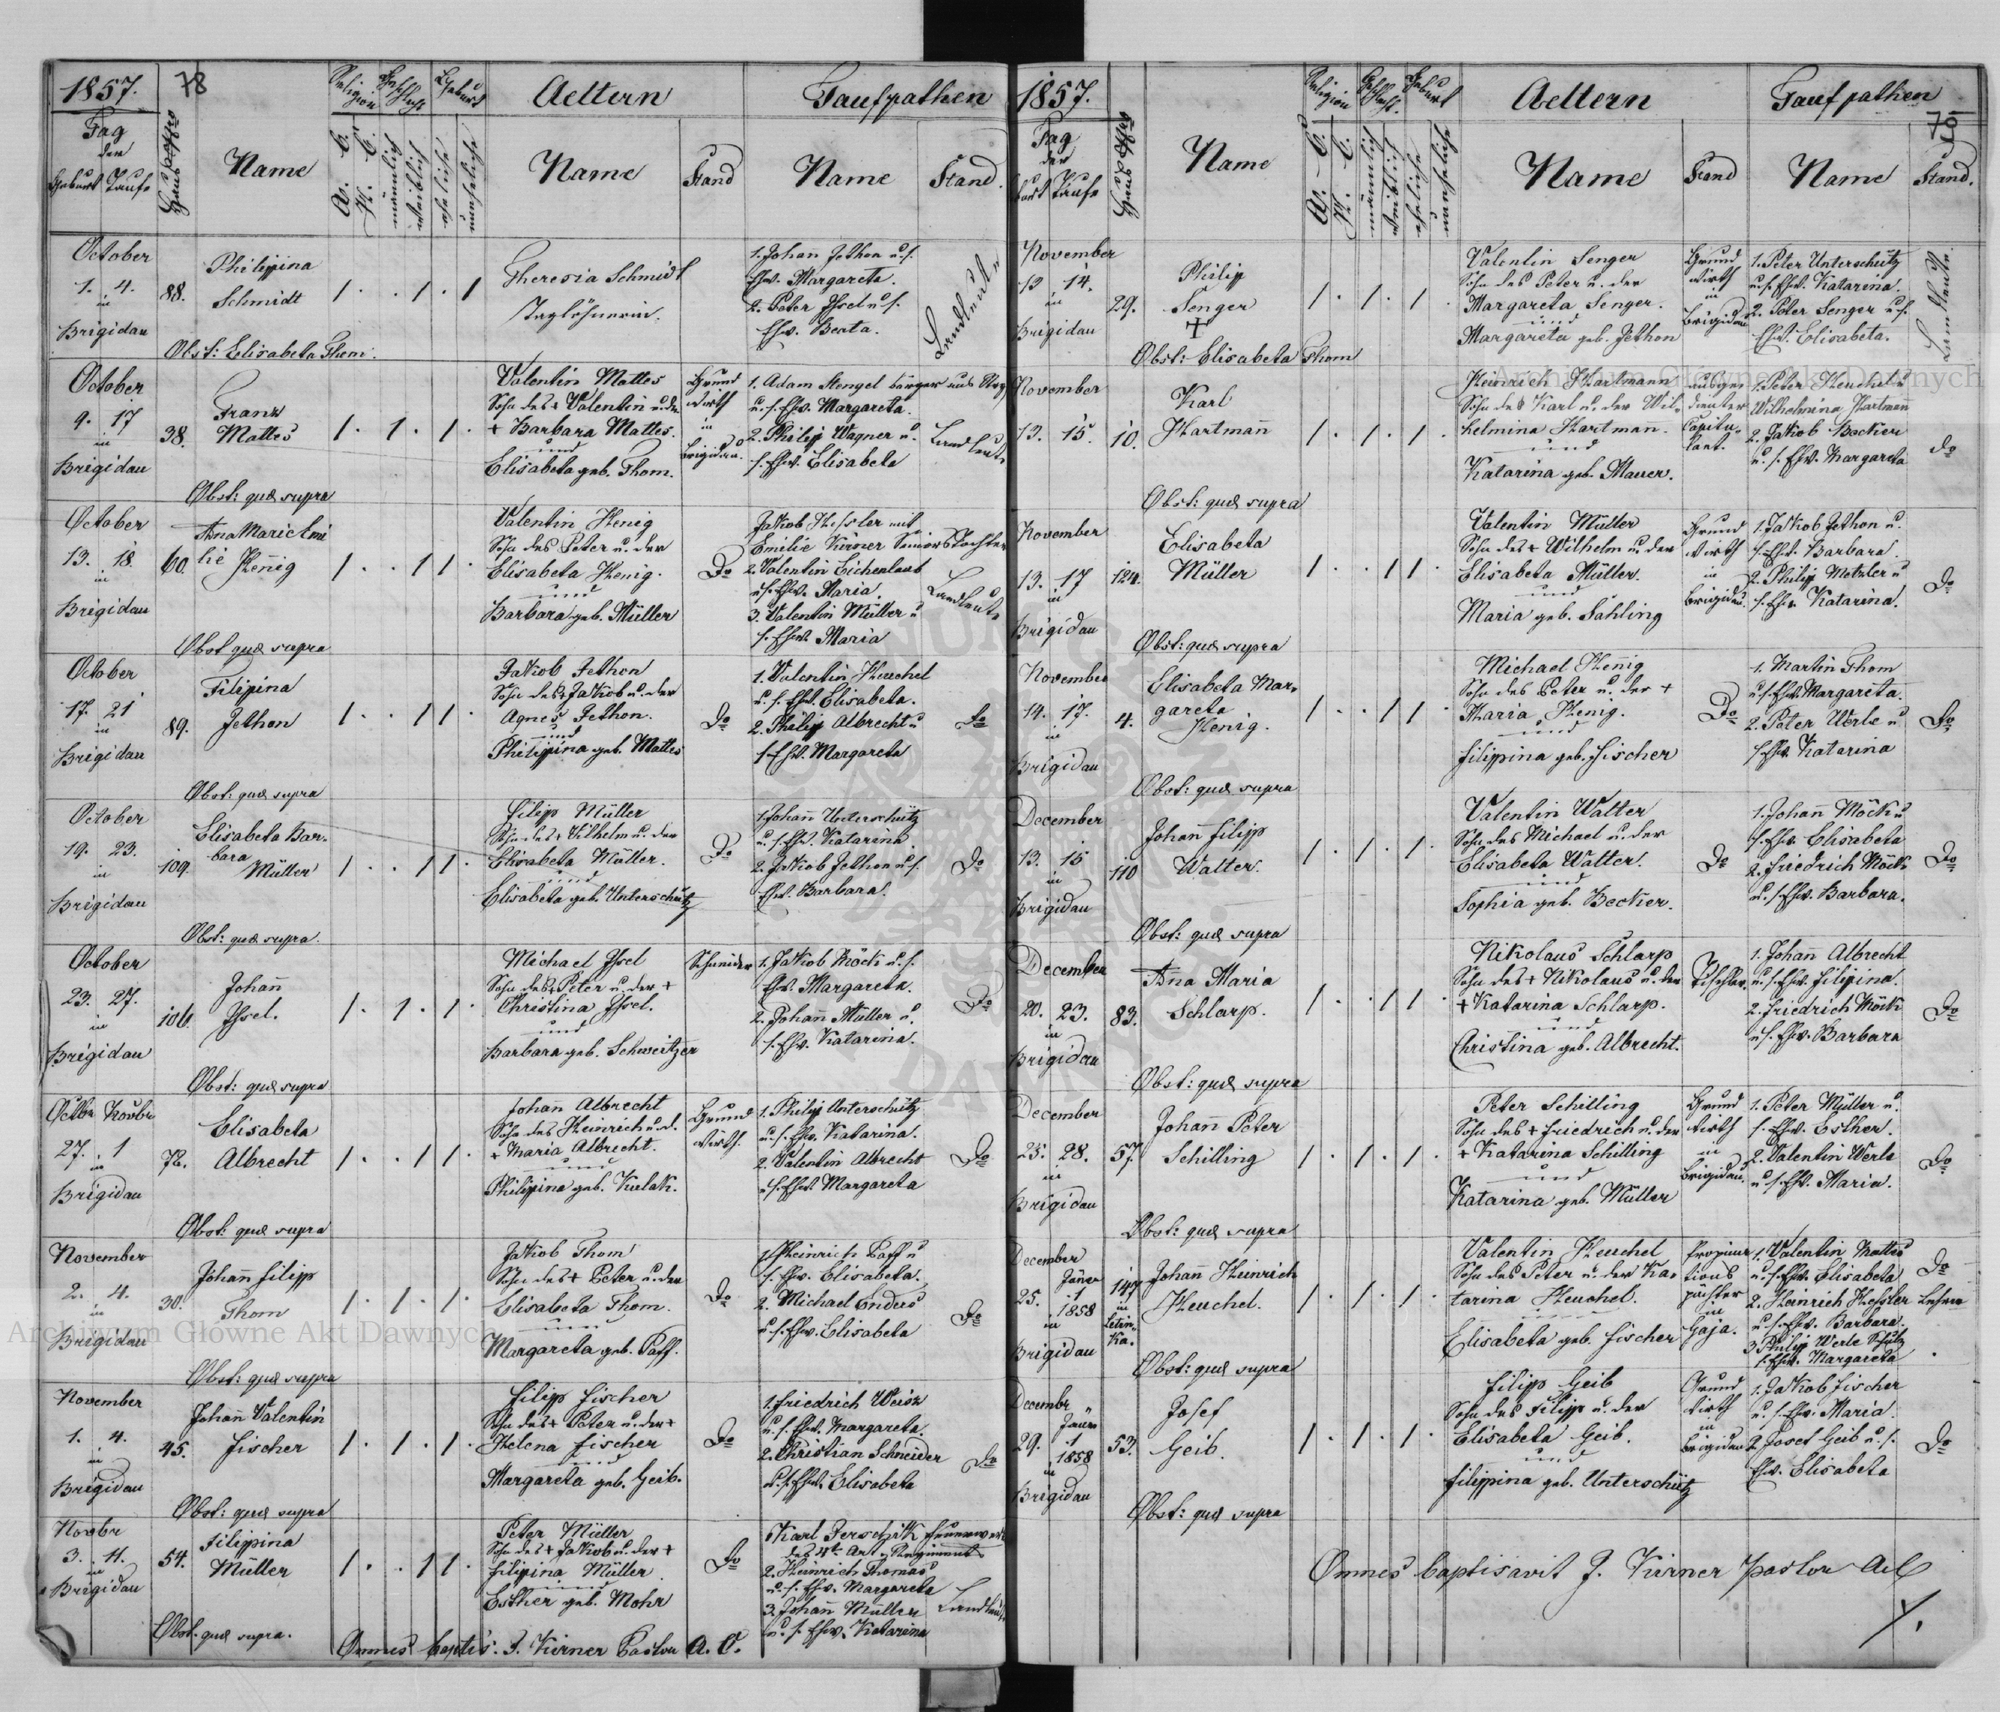 1857.
78
Religion
Geschlecht
Geburt
Aeltern
Taufpathen
Tag
der
Geburt Taufe
Haus Nro
Name
A. C.
H. C.
männlich
weiblich
eheliche
uneheliche
Name
Stand
Name
Stand.
October
1. 4.
in
Brigidau
88.
Philippina
Schmidt
1 . . 1 . 1
Theresia Schmidt
Taglöhnerin.
1. Johan̄ Jethon u. s.
Ehw. Margareta.
2. Peter Issel u. s.
Ehw. Beata.
Landleute
Obst: Elisabeta Thom.
October
9. 17
in
Brigidau
38.
Franz
Mattes
1 . 1 . 1 .
Valentin Mattes
Sohn des + Valentin u. der
+ Barbara Mattes.
und
Elisabeta geb. Thom.
Grund
wirth
in
Brigidau
1. Adam Stengel bürger aus Stryj
u. s. Ehw. Margareta.
2. Philip Wagner u.
s. Ehw. Elisabeta
Landleute
Obst: quæ supra
October
13. 18.
in
Brigidau
60.
Ana Maria Emi
lie Henig
1 . . 1 1 .
Valentin Henig
Sohn des Peter u. der
Elisabeta Henig.
und
Barbara geb. Müller
Do
Jakob Hessler mit
Emilie Kirner Seniors Tochter
2. Valentin Eichenlaub
u. s. Ehw. Maria.
3. Valentin Müller u
s. Ehw. Maria
Landleute
Obst quæ supra
October
17. 21
in
Brigidau
89.
Filipina
Jethon
1 . . 1 1 .
Jakob Jethon
Sohn des + Jakob u. der
Agnes Jethon.
und
Philippina geb. Mattes
Do
1. Valentin Heuchel
u. s. Ehw. Elisabeta.
2. Philip Albrecht u
s. Ehw. Margareta
Do
Obst: quæ supra
October
19. 23.
in
Brigidau
109.
Elisabeta Bar-
bara
Müller
1 . . 1 1 .
Filip Müller
Sohn des + Wilhelm u. der
Elisabeta Müller.
und
Elisabeta geb. Unterschütz
Do
1. Johan̄ Unterschütz
u. s. Ehw. Katarina.
2. Jakob Jethon u. s.
Ehw. Barbara.
Do
Obst: quæ supra.
October
23. 27.
in
Brigidau
106.
Johan̄
Issel.
1 . 1 . 1 .
Michael Issel
Sohn des + Peter u. der +
Christina Issel.
und
Barbara geb. Schweitzer
Schneider
1. Jakob Möck u. s.
Ehw. Margareta.
2. Johan̄ Müller u.
s. Ehw. Katarina.
Do
Obst: quæ supra
Octbr Novbr
27. 1
in
Brigidau
72.
Elisabeta
Albrecht
1 . . 1 1 .
Johan̄ Albrecht
Sohn des Heinrich u. d.
+ Maria Albrecht.
und
Philippina geb. Kulak.
Grund
wirth.
1. Philip Unterschütz
u. s. Ehw. Katarina.
2. Valentin Albrecht
u. s. Ehw. Margareta
Do
Obst: quæ supra
November
2. 4.
in
Brigidau
30.
Johan̄ Filipp
Thom
1 . 1 . 1 .
Jakob Thom
Sohn des + Peter u. der
Elisabeta Thom.
und
Margareta geb. Paff.
Do
1. Heinrich Paff u
s. Ehw. Elisabeta.
2. Michael Enders
u. s. Ehw. Elisabeta
Do
Obst: quæ supra
November
1. 4.
in
Brigidau
45.
Johan̄ Valentin
Fischer
1 . 1 . 1 .
Filip Fischer
Sohn des + Peter u. der +
Helena Fischer
und
Margareta geb. Geib.
Do
1. Friedrich Weisz
u. s. Ehw. Margareta.
2. Christian Schneider
u. s. Ehw. Elisabeta
Do
Obst: quæ supra
Novbr
3. 11.
in
Brigidau
54.
Filippina
Müller
1 . . 1 1 .
Peter Müller
Sohn des + Jakob u. der +
Filipina Müller.
und
Esther geb. Mohr
Do
1. Karl
des 4t. Art. Regiments
2. Heinrich Thomas
u. s. Ehw. Margareta
3. Johan̄ Müller
u. s. Ehw. Katarina
Landleute
Obst. quæ supra.
Omnes baptis. J. Kirner Pastor A. C.
1857.
Religion
Geschlecht.
Geburt
Aeltern
Taufpathen
78
Tag
der
burt Taufe
Haus Nro
Name
A. C.
H. C.
männlich
weiblich
eheliche
uneheliche
Name
Stand
Name
Stand.
November
13 14.
in
Brigidau
29.
Philip
Senger
+
1 . 1 . 1 .
Valentin Senger
Sohn des Peter u. der
Margareta Senger.
und
Margareta geb. Jethon
Grund
wirth
in
Brigidau
1. Peter Unterschütz
u. s. Ehw. Katarina.
2. Peter Senger u. s.
Ehw. Elisabeta.
Landleute
Obst: Elisabeta Thom
November
13. 15.
10.
Karl
Hartman̄
1 . 1 . 1 .
Heinrich Hartmann
Sohn des Karl u. der Wil-
helmina Hartman.
und
Katarina geb. Mauer.
ausge
dienter
Capitu-
lant.
1. Peter Heuchel u
Wilhelmina Hartman̄
2. Jakob Becker
u. s. Ehw. Margareta
do
Obst: quæ supra
November
13. 17
in
Brigidau
124.
Elisabeta
Müller
1 . . 1 1 .
Valentin Müller
Sohn des + Wilhelm u. der
Elisabeta Müller.
und
Maria geb. Sahling
Grund
wirth
in
Brigidau.
1. Jakob Jethon u.
s. Ehw. Barbara.
2. Philip Metzler u
s. Ehw. Katarina.
Do
Obst: quæ supra
November
14. 17.
in
Brigidau
4.
Elisabeta Mar-
gareta
Henig.
1 . . 1 1 .
Michael Henig
Sohn des Peter u. der +
Maria Henig.
und
Filippina geb. Fischer
Do
1. Martin Thom
u. s. Ehw. Margareta.
2. Peter Werle u
s. Ehw. Katarina
Do
Obst: quæ supra
December
13. 15
in
Brigidau
110
Johan̄ Filipp
Walter.
1 . 1 . 1 .
Valentin Walter
Sohn des Michael u. der
Elisabeta Walter.
und
Sophia geb. Becker.
Do
1. Johan̄ Möck u
s. Ehw. Elisabeta
2. Friedrich Möck
u. s. Ehw. Barbara.
Do
Obst: quæ supra
December
20. 23.
in
Brigidau
83.
Ana Maria
Schlarp.
1 . . 1 1 .
Nikolaus Schlarp
Sohn des + Nikolaus u. der
+ Katarina Schlarp.
und
Christina geb. Albrecht.
Tischler.
1. Johan̄ Albrecht
u. s. Ehw. Filipina.
2. Friedrich Möck
u. s. Ehw. Barbara
Do
Obst: quæ supra
December
25. 28.
in
Brigidau
57.
Johan̄ Peter
Schilling
1 . 1 . 1 .
Peter Schilling
Sohn des + Friedrich u. der
+ Katarina Schilling
und
Katarina geb. Müller
Grund
wirth
in
Brigidau.
1. Peter Müller u.
s. Ehw. Esther.
2. Valentin Werle
u. s. Ehw. Maria.
Do
Obst: quæ supra
December
Jäner
25. 1
1858
in
Brigidau
147
in
Letin-
ka.
Johan̄ Heinrich
Heuchel.
1 . 1 . 1 .
Valentin Heuchel
Sohn des Peter u. der Ka-
tarina Heuchel.
Elisabeta geb. Fischer
Propina-
tions
pächter
in
Gaja.
1. Valentin Mattes
u. s. Ehw. Elisabeta
2. Heinrich Hessler
u. s. Ehw. Barbara.
3. Philip Werle
s. Ehw. Margareta
Do
Lehrer
Obst: quæ supra
Decembr
Jäner
29. 1
1858
in
Brigidau
53.
Josef
Geib.
1 . 1 . 1 .
Filipp Geib
Sohn des Filipp u. der
Elisabeta Geib.
und
Filippina geb. Unterschütz
Grund
wirth
in
Brigidau
1. Jakob Fischer
u. s. Ehw. Maria.
2. Josef Geib u. s.
Ehw. Elisabeta
Do
Obst: quæ supra
Omnes baptisavit J. Kirner pastor AC
Archiwum Główne Akt Dawnych
Archiwum Główne Akt Dawnych